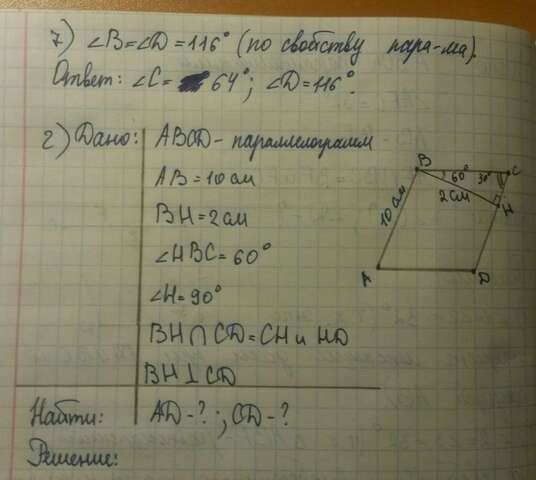 7) ∠B=∠D=116° (по свойству пара-ма).
Ответ: ∠C= 64°; ∠D=116°.
2) Дано: ABCD - параллелограмм
AB=10 см
BH=2 см
∠HBC=60°
∠H=90°
BH∩CD=CH и HD
BH⊥CD
Найти: AD-?; CD-?
Решение:
B 60° 30° C
2 см H
10 см
A D